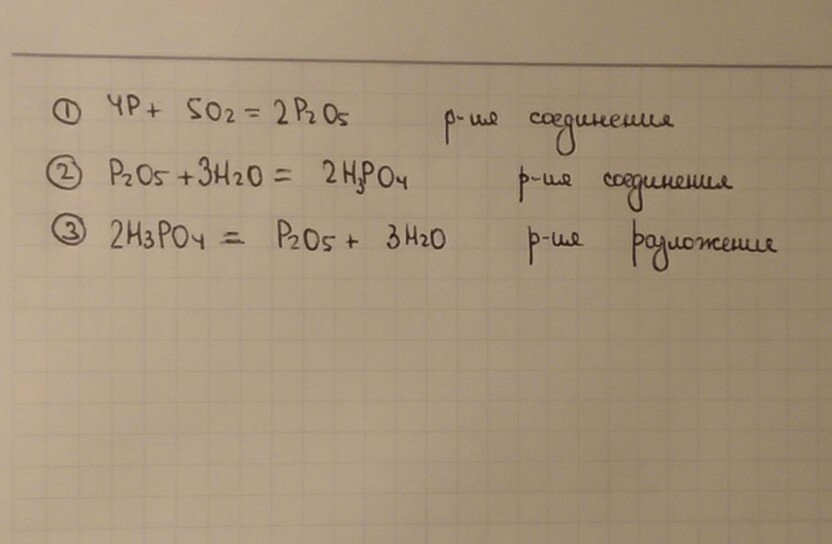 ① 4P + 5O2 = 2P2O5 р-ия соединения
② P2O5 + 3H2O = 2H3PO4 р-ия соединения
③ 2H3PO4 = P2O5 + 3H2O р-ия разложения